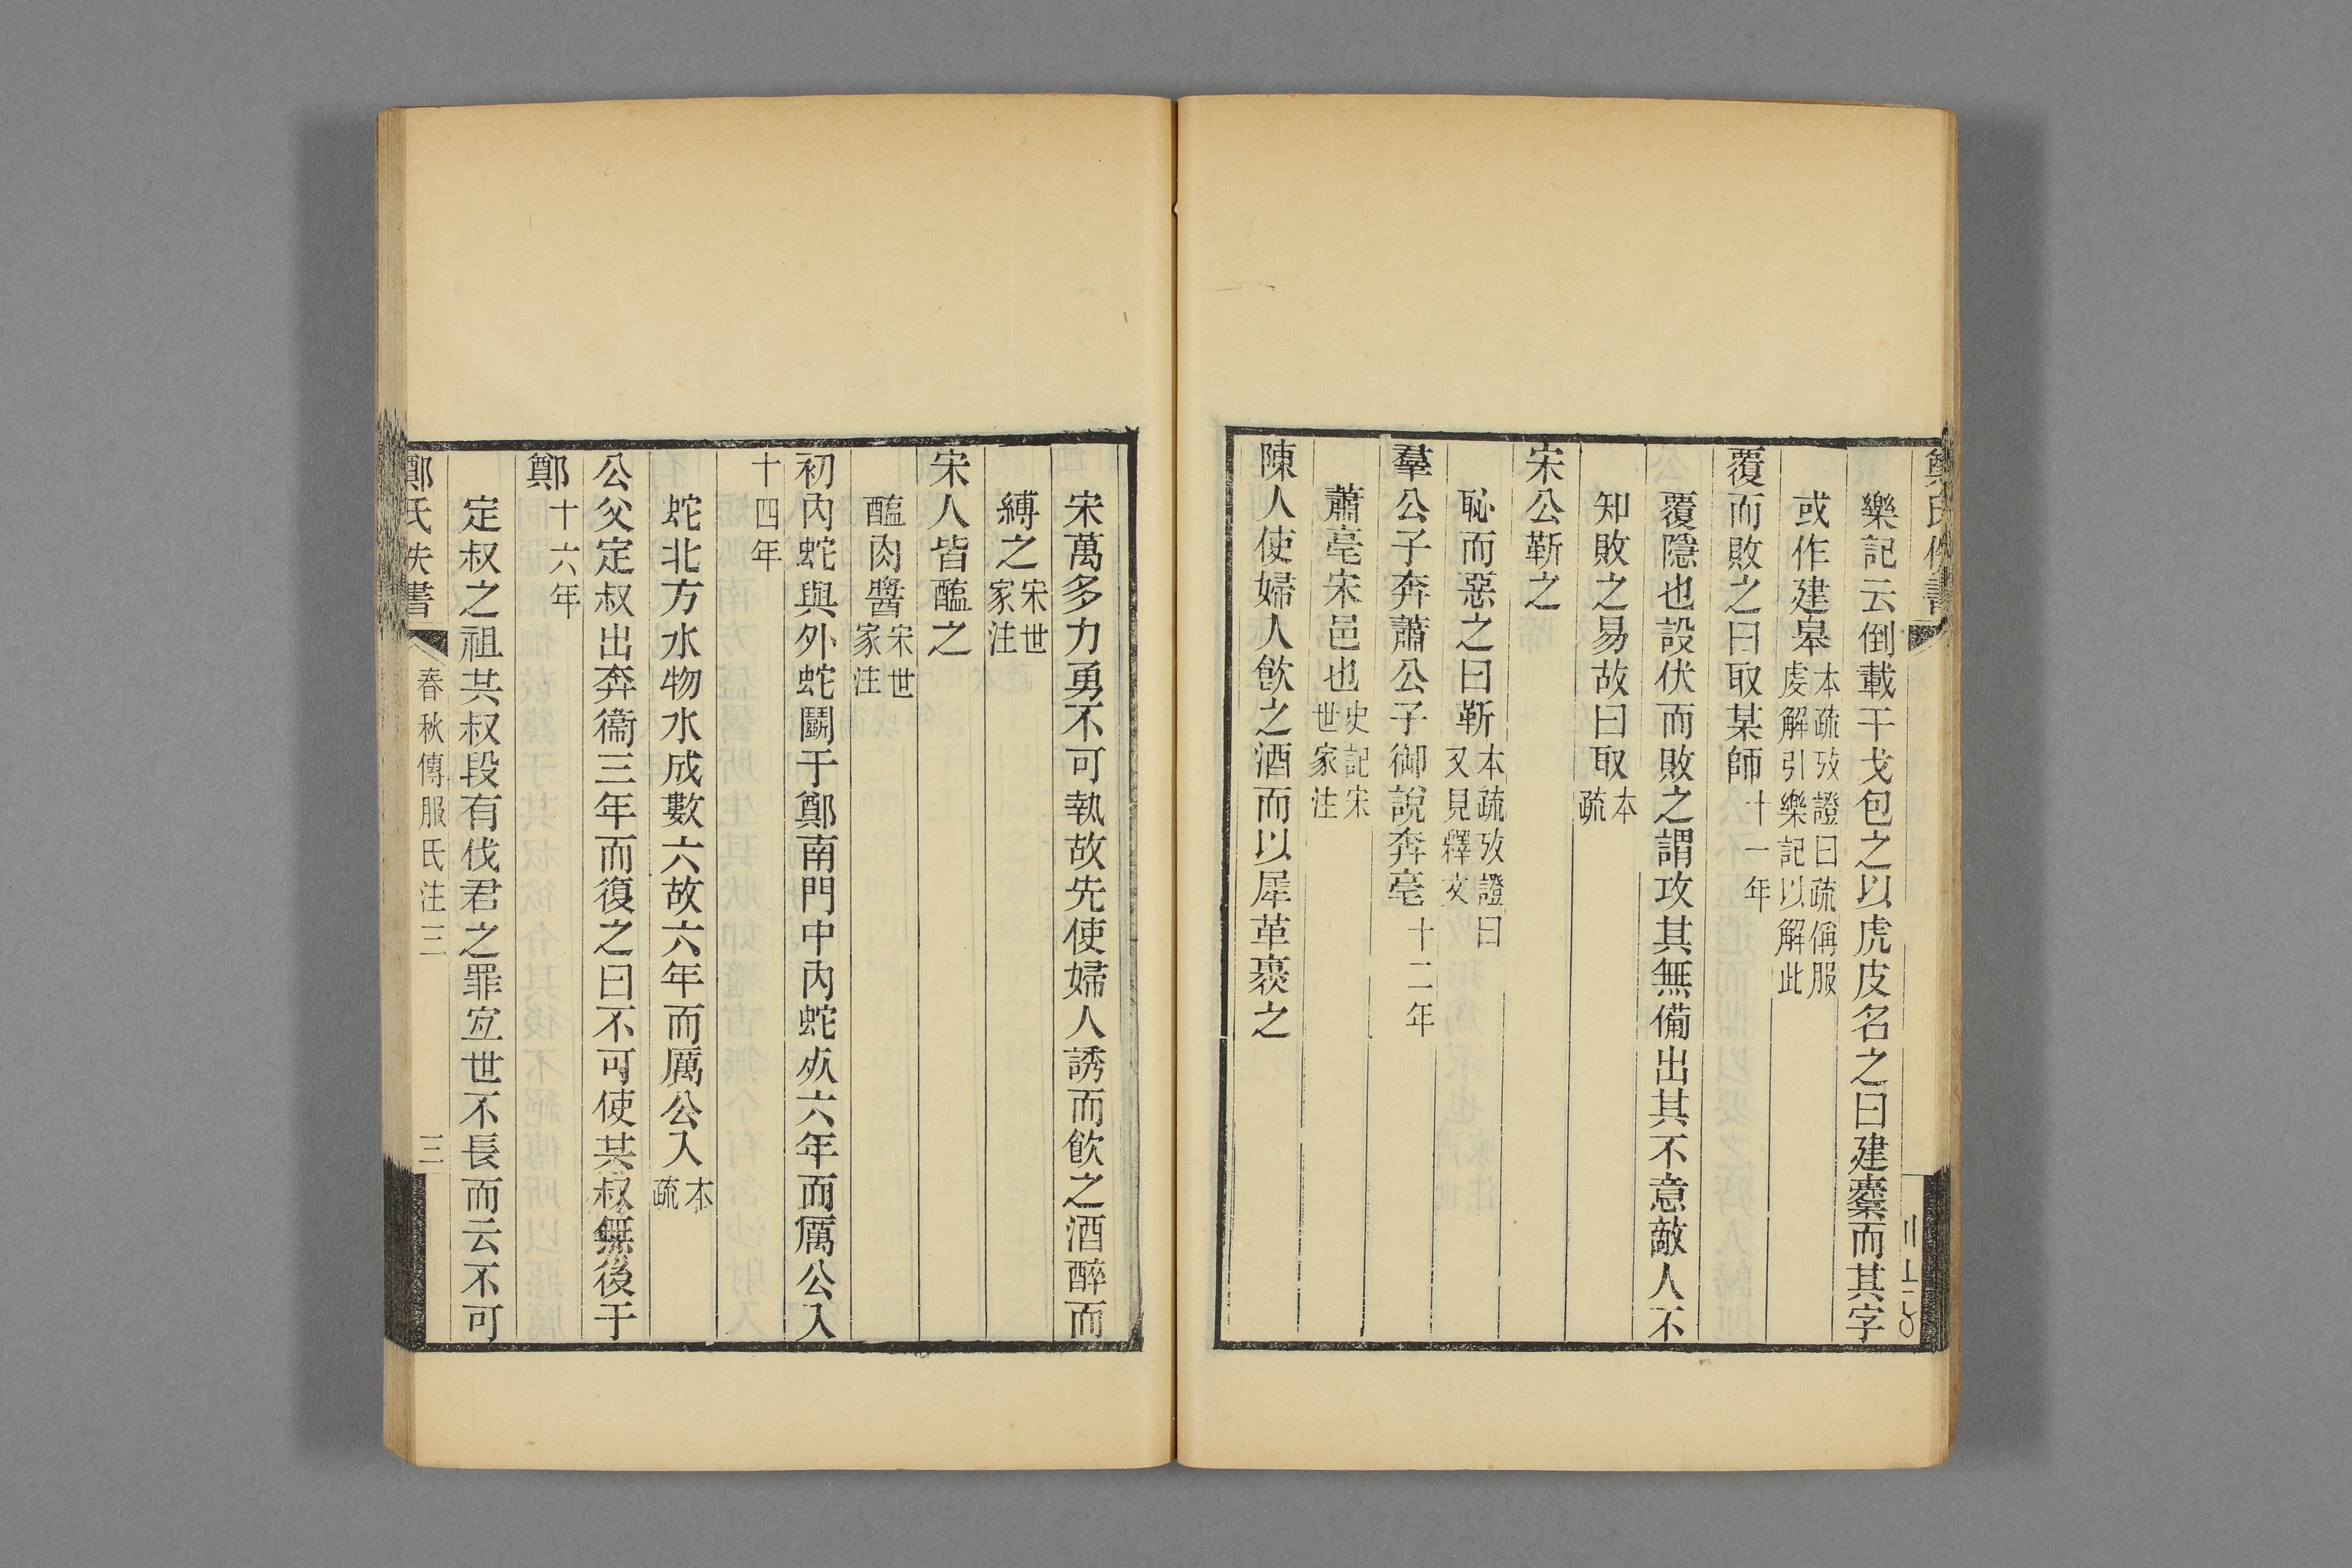 樂記云倒載干戈包之以虎皮名之曰建櫜而其字
或作建皋本疏攷證曰疏偁服虔解引樂記以解此
覆而敗之曰取某師十一年
覆隱也設伏而敗之謂攻其無備出其不意敵人不
知敗之易故曰取本疏
宋公靳之
恥而惡之曰靳本疏攷證曰又見釋文
羣公子奔蕭公子御說奔亳十二年
蕭亳宋邑也史記宋世家注
陳人使婦人飲之酒而以犀革裹之
宋萬多力勇不可執故先使婦人誘而飲之酒醉而
縛之宋世家注
宋人皆醢之
醢肉醬宋世家注
初內蛇與外蛇鬭于鄭南門中內蛇死六年而厲公入
十四年
蛇北方水物水成數六故六年而厲公入本疏
公父定叔出奔衞三年而復之曰不可使共叔無後于
鄭十六年
定叔之祖共叔段有伐君之罪宜世不長而云不可
鄭氏佚書 春秋傳服氏注三 三